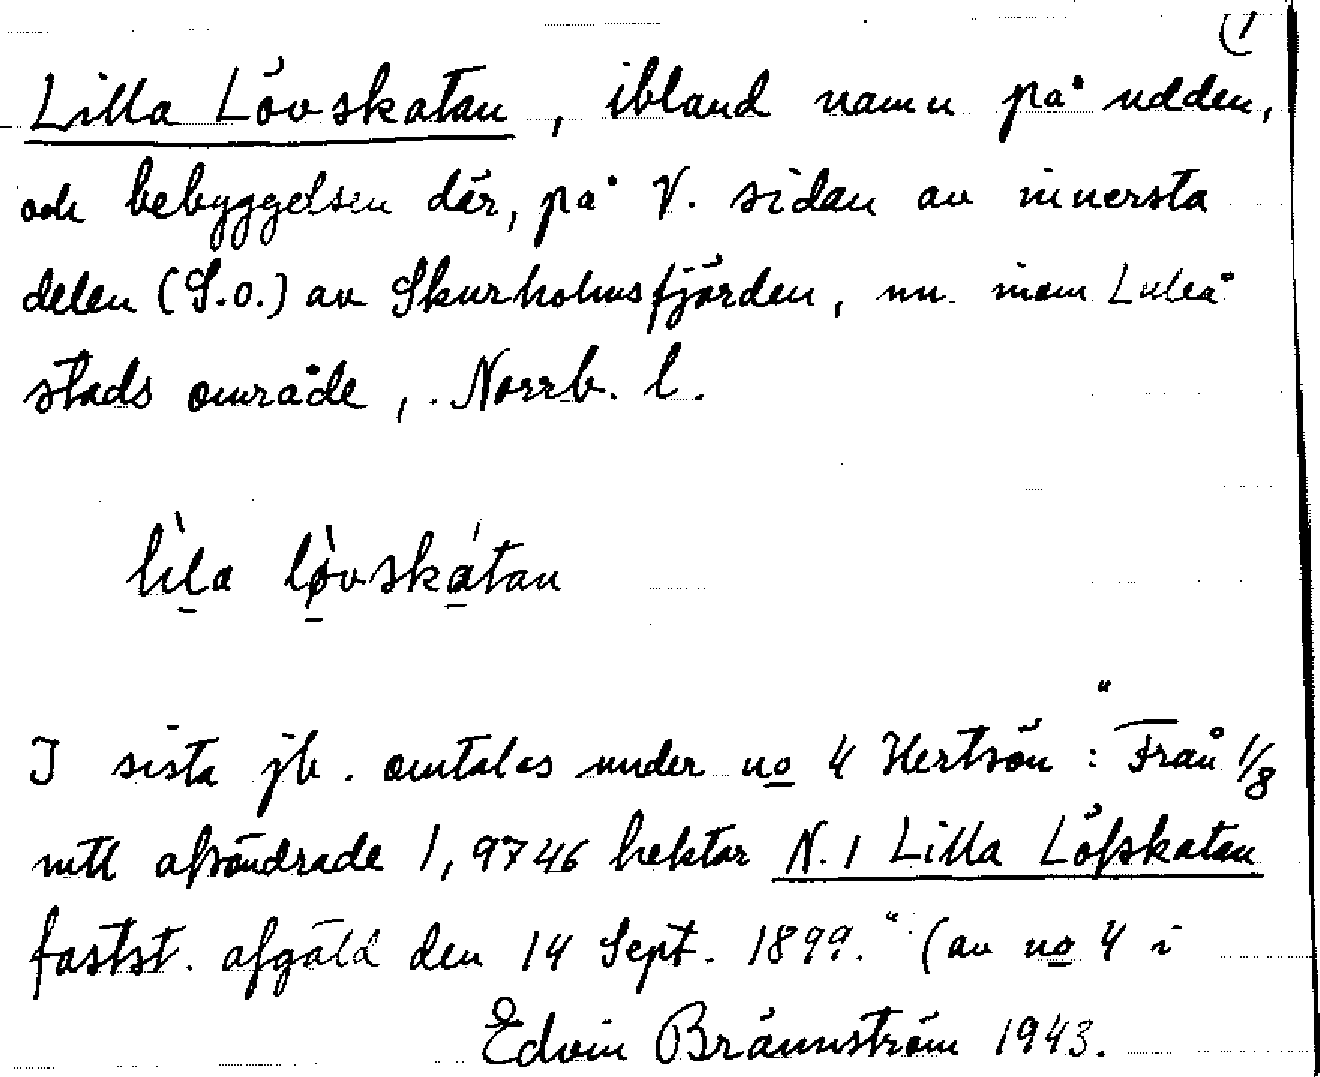 (1
Lilla Lövskatan, ibland namn på udden,
och bebyggelsen där, på V. sidan av innersta
delen (S.O.) av Skurholmsfjärden, nu inom Luleå
stads område, Norrb. l.
lìla lø̀vskátan
I sista jb. omtalas under no 4 Hertsön: "Från 1/8
mtl afsöndrade 1,9746 hektar N. 1 Lilla Löfskatan
fastst. afgäld den 14 Sept. 1899." (av no 4 i
Edvin Brännström 1943.